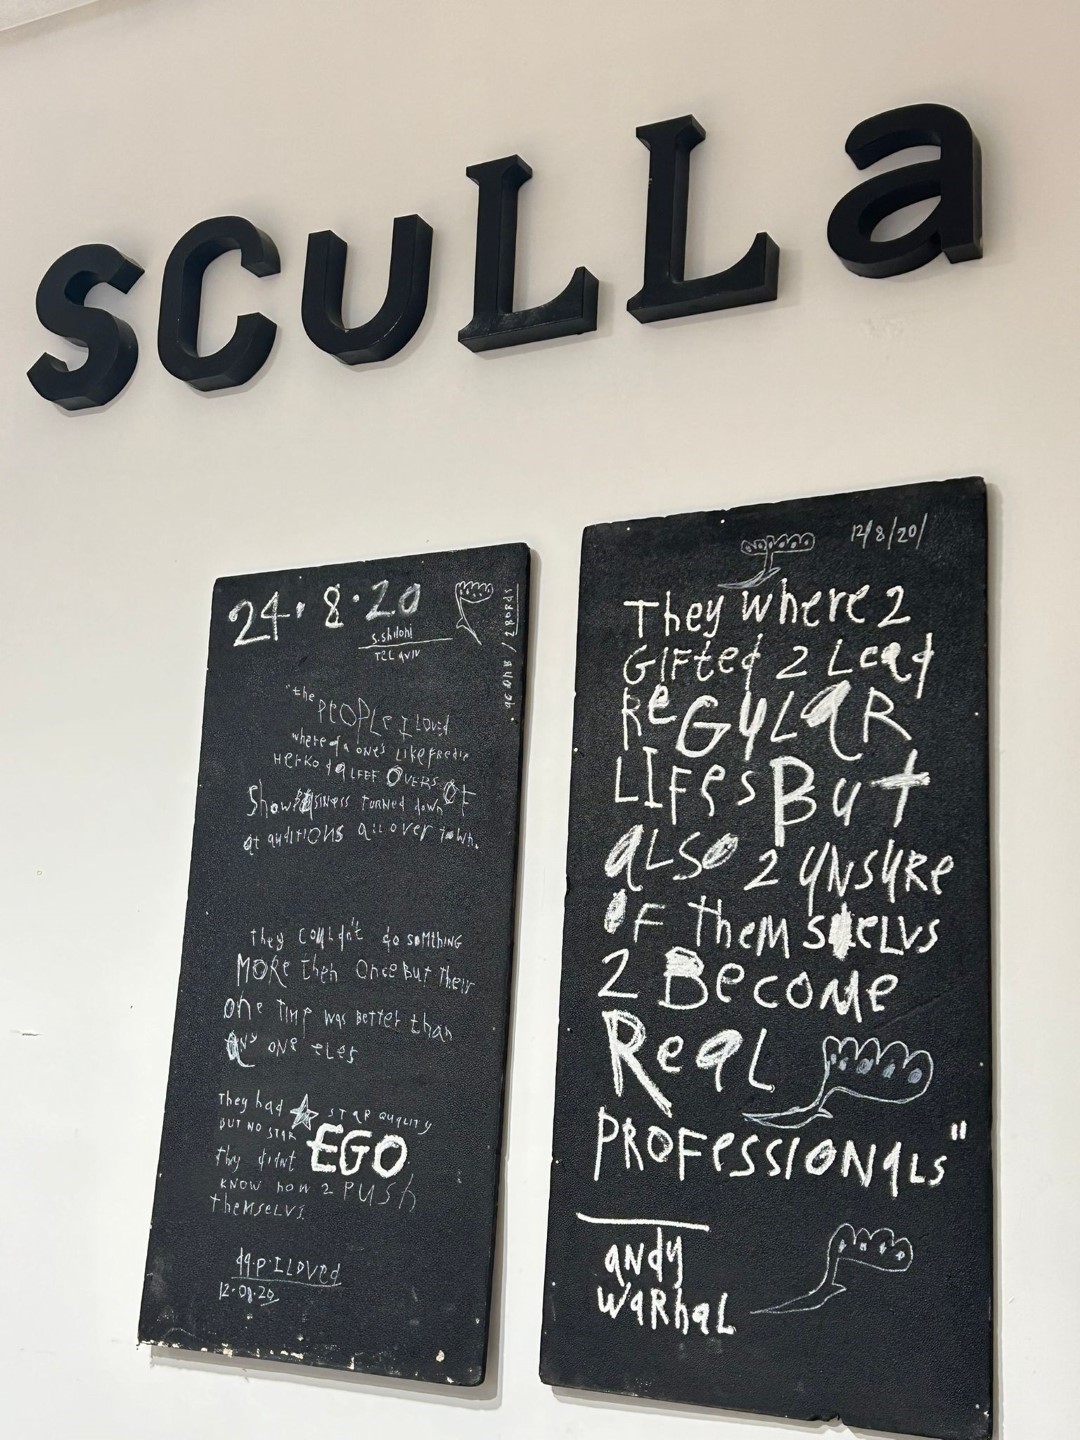 scuLLa
24.8.20
S.Shiloni
TEL AVIV
"the PEOPLE I Loved
where da ones LIKE FREDIE
HERKO da LEFF OVERS OF
Show business TURNED down
at auditIONS all over town.
they couldn't do soMthING
MORE then Once But their
one Time was BETTER than
any one eles
They had STAR QUALITY
BUT NO STAR EGO
thy didnt
KNOW how 2 PUSH
theMSELVS.
da.P.I LOVED
12.08.20
12/8/20/
They where 2
GIFted 2 Lead
ReGULaR
LIFes But
aLso 2 uNsuRe
OF theM selvs
2 BecoMe
Real
PROFessIONals"
andy
waRhaL